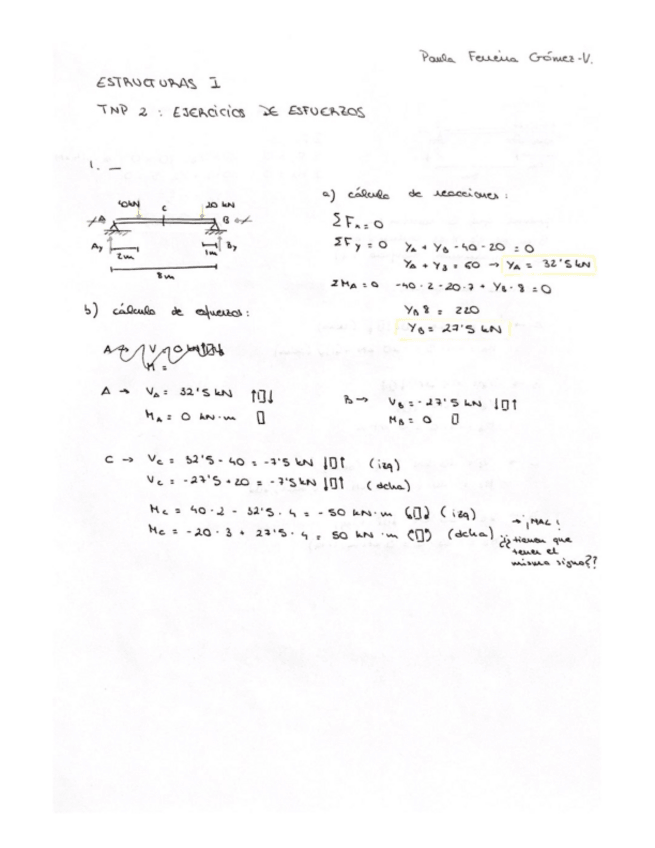 Paula Ferreira Gómez-V.
ESTRUCTURAS I
TNP 2 : EJERCICIOS DE ESFUERZOS
1. —
40kN C 20 kN
A B
Ay 2m 1m By
8m
a) cálculo de reacciones:
ΣFx = 0
ΣFy = 0 YA + YB - 40 - 20 = 0
YA + YB = 60 → YA = 32'5 kN
ΣMA = 0 -40 · 2 - 20 · 7 + YB · 8 = 0
YB 8 = 220
YB = 27'5 kN
b) cálculo de esfuerzos:
A → VA = 32'5 kN ↑▯↓
MA = 0 kN·m ▯
B → VB = -27'5 kN ↓▯↑
MB = 0 ▯
C → Vc = 32'5 - 40 = -7'5 kN ↓▯↑ (izq)
Vc = -27'5 + 20 = -7'5 kN ↓▯↑ (dcha)
Mc = 40 · 2 - 32'5 · 4 = - 50 kN·m (▯) (izq)
Mc = -20 · 3 + 27'5 · 4 = 50 kN·m (▯) (dcha)
→ ¡MAL!
¿¿tienen que
tener el
mismo signo??